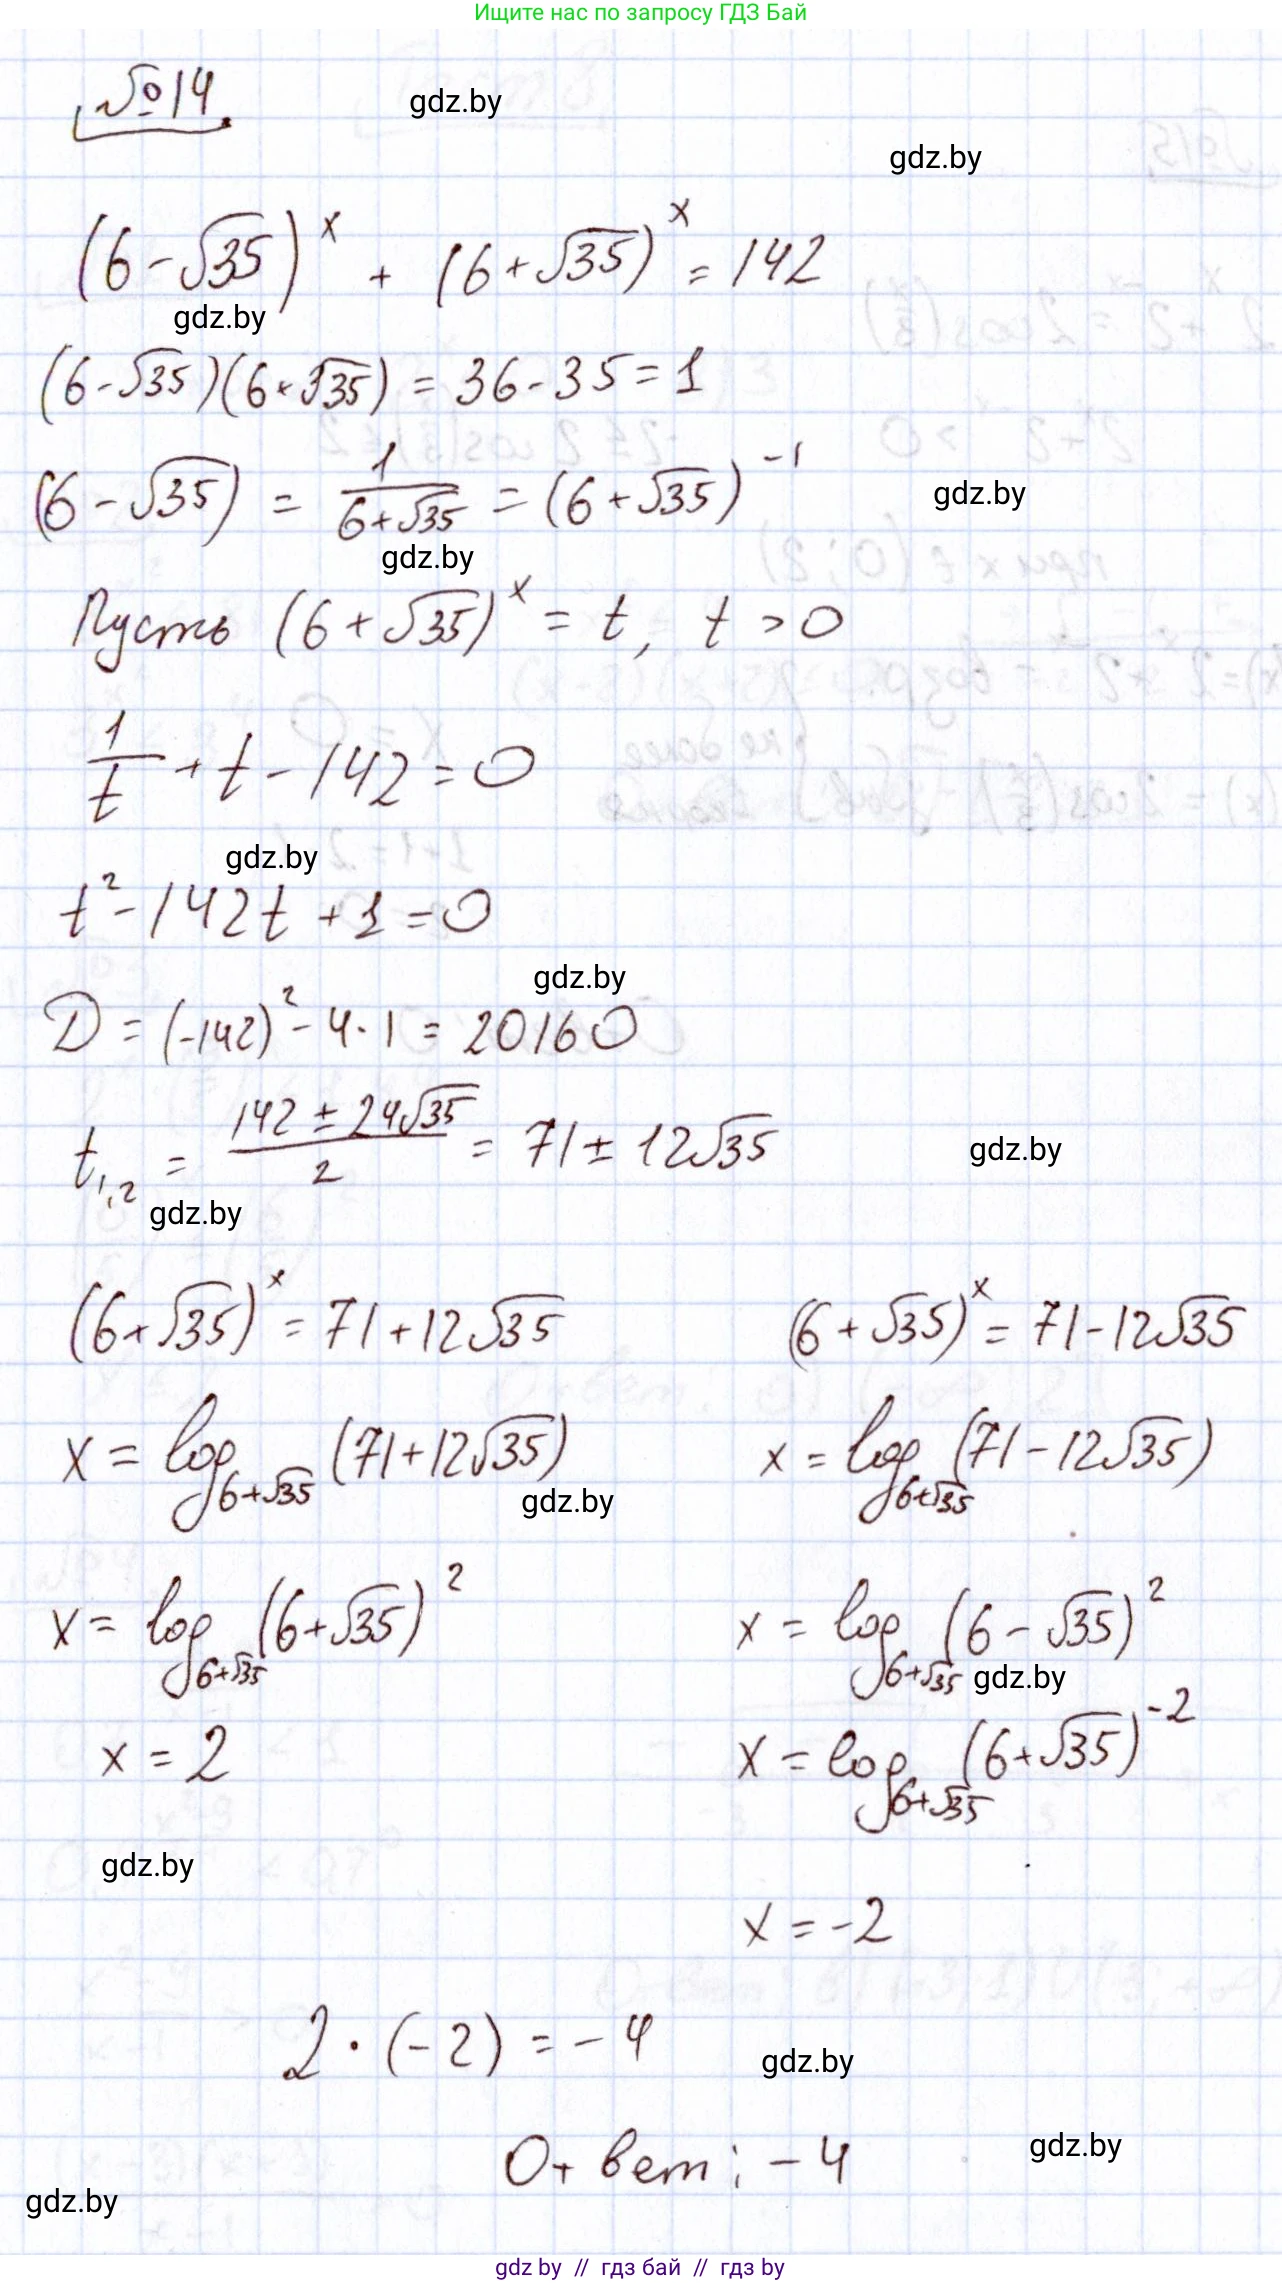 Ищите нас по запросу ГДЗ Бай
№14
gdz.by
gdz.by
(6-√35)^x + (6+√35)^x = 142
gdz.by
(6-√35)(6+√35) = 36-35 = 1
(6-√35) = 1/(6+√35) = (6+√35)^-1
gdz.by
gdz.by
Пусть (6+√35)^x = t, t > 0
1/t + t - 142 = 0
gdz.by
t² - 142t + 1 = 0
gdz.by
D = (-142)² - 4·1 = 20160
t₁,₂ = (142 ± 24√35)/2 = 71 ± 12√35
gdz.by
gdz.by
(6+√35)^x = 71+12√35 (6+√35)^x = 71-12√35
x = log_{6+√35} (71+12√35) x = log_{6+√35} (71-12√35)
gdz.by
x = log_{6+√35} (6+√35)² x = log_{6+√35} (6-√35)²
gdz.by
x = 2 x = log_{6+√35} (6+√35)^-2
gdz.by
x = -2
2·(-2) = -4
gdz.by
Ответ: -4
gdz.by
gdz.by
gdz by // гдз бай // гдз by